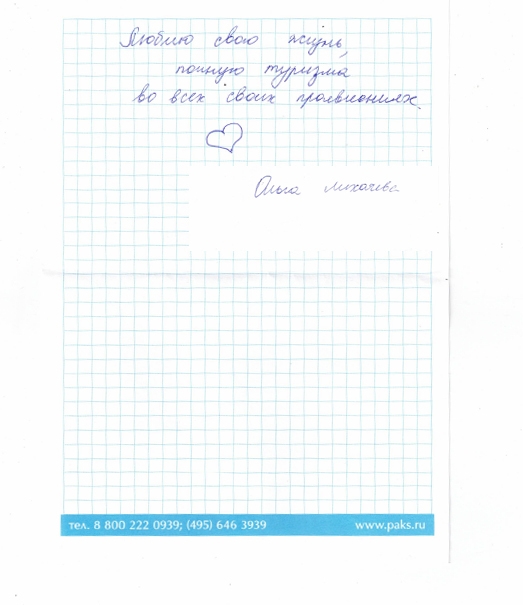 Люблю свою жизнь,
полную туризма
во всех своих проявлениях.
Ольга Лихачева
тел. 8 800 222 0939; (495) 646 3939
www.paks.ru